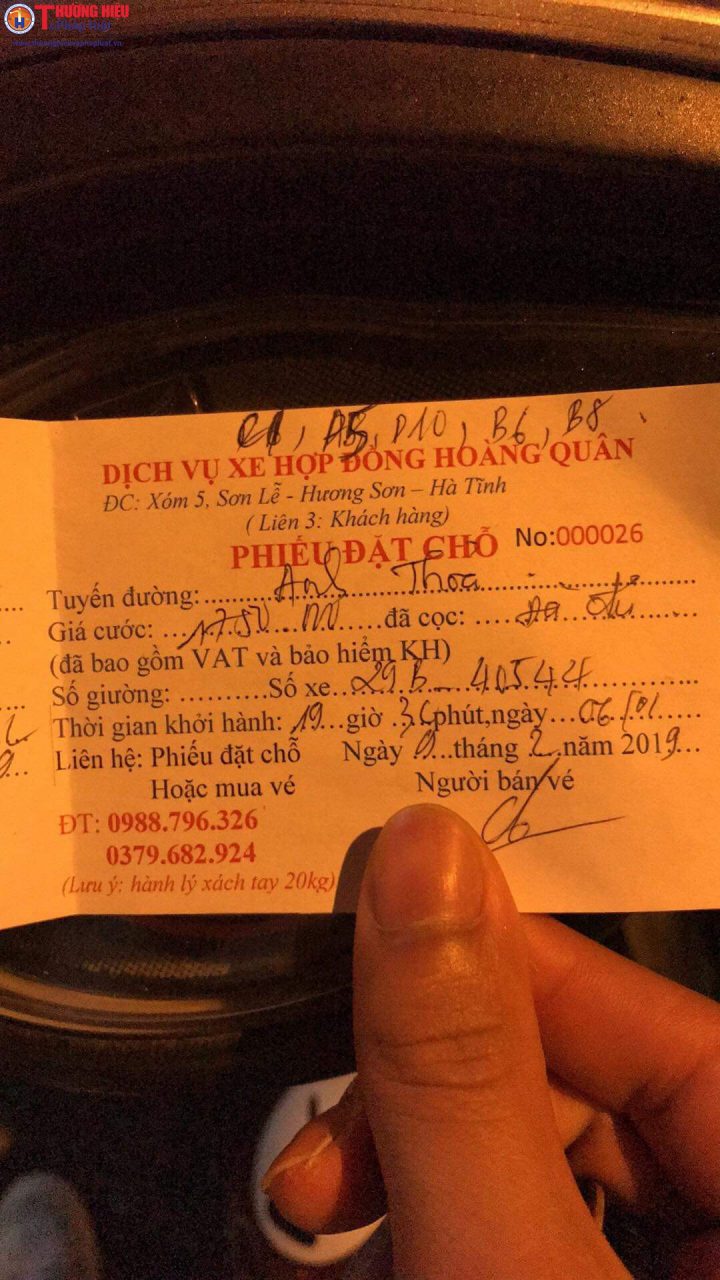 THƯƠNG HIỆU
C1, A5, D10, B6, B8
DỊCH VỤ XE HỢP ĐỒNG HOÀNG QUÂN
ĐC: Xóm 5, Sơn Lễ - Hương Sơn – Hà Tĩnh
( Liên 3: Khách hàng)
PHIẾU ĐẶT CHỖ No:000026
Tuyến đường: Anh Thoa
Giá cước: 1750 đã cọc:
(đã bao gồm VAT và bảo hiểm KH)
Số giường: .......... Số xe.. 29B - 40544
Thời gian khởi hành: 19 giờ 36 phút,ngày...06/01
Liên hệ: Phiếu đặt chỗ Ngày 9 tháng 2 năm 2019...
Hoặc mua vé Người bán vé
ĐT: 0988.796.326
0379.682.924
(Lưu ý: hành lý xách tay 20kg)